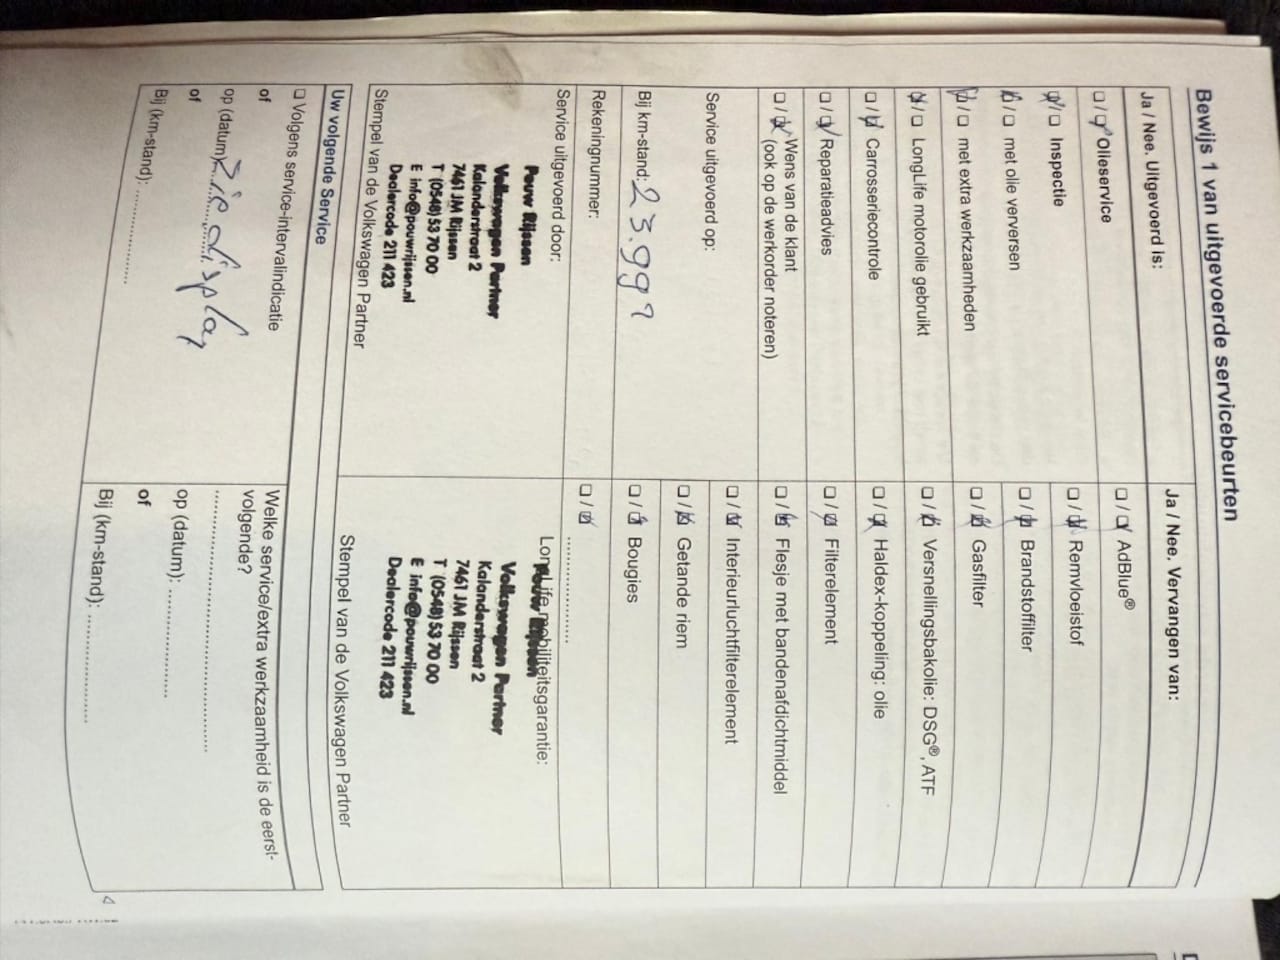 Bewijs 1 van uitgevoerde servicebeurten
Ja / Nee. Uitgevoerd is:
Olieservice
Inspectie
met olie verversen
met extra werkzaamheden
LongLife motorolie gebruikt
Carrosseriecontrole
Reparatieadvies
Wens van de klant
(ook op de werkorder noteren)
Service uitgevoerd op:
Bij km-stand: 23.999
Rekeningnummer:
Service uitgevoerd door:
Pouw Rijssen
Volkswagen Partner
Kalanderstraat 2
7461 JM Rijssen
T (0548) 53 70 00
E info@pouwrijssen.nl
Dealercode 211 423
Stempel van de Volkswagen Partner
Ja / Nee. Vervangen van:
AdBlue®
Remvloeistof
Brandstoffilter
Gasfilter
Versnellingsbakolie: DSG®, ATF
Haldex-koppeling: olie
Filterelement
Flesje met bandenafdichtmiddel
Interieurluchtfilterelement
Getande riem
Bougies
LongLife mobiliteitsgarantie:
Pouw Rijssen
Volkswagen Partner
Kalanderstraat 2
7461 JM Rijssen
T (0548) 53 70 00
E info@pouwrijssen.nl
Dealercode 211 423
Stempel van de Volkswagen Partner
Uw volgende Service
Volgens service-intervalindicatie
of
op (datum) zie display
of
Bij (km-stand):
Welke service/extra werkzaamheid is de eerst-
volgende?
op (datum):
of
Bij (km-stand):